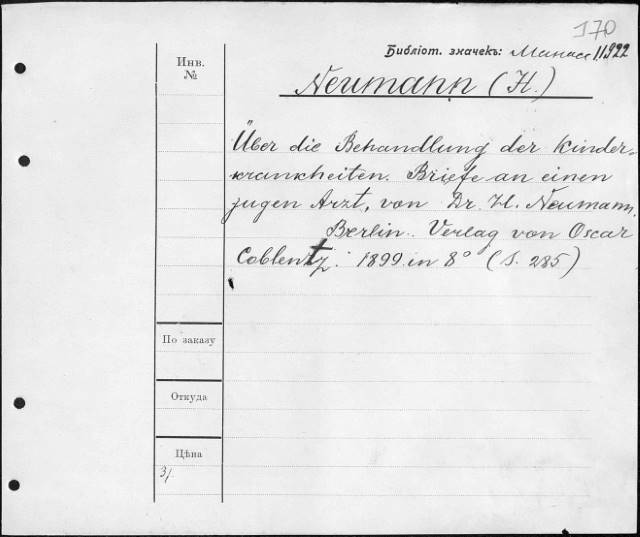 170
Библіот. значекъ: Манасс 11922
Инв.
№
Neumann (H.)
Über die Behandlung der Kinder-
krankheiten. Briefe an einen
jugen Arzt, von Dr. H. Neumann.
Berlin. Verlag von Oscar
Coblentz. 1899. in 8° (S. 285)
По заказу
Откуда
Цѣна
3/.